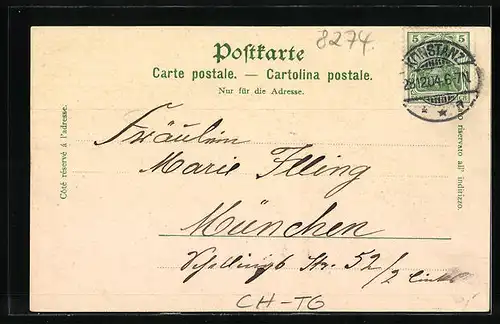 8274.
Postkarte
Carte postale. — Cartolina postale.
Nur für die Adresse.
5 5
KONSTANZ
28.12.04.6-7N.
Côté réservé à l'adresse.
riservato all' indirizzo.
Fräulein
Marie Illing
München
Schellingstr. 52/2 links
CH-TG